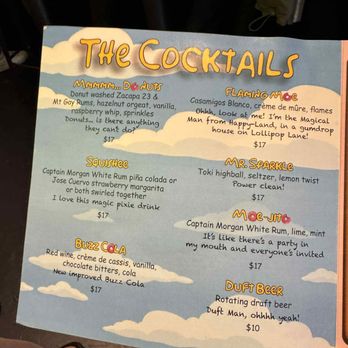 THE COCKTAILS
MMMMM... DONUTS
Donut washed Zacapa 23 &
Mt Gay Rums, hazelnut orgeat, vanilla,
raspberry whip, sprinkles
Donuts... is there anything
they can't do?
$17
SQUISHEE
Captain Morgan White Rum piña colada or
Jose Cuervo strawberry margarita
or both swirled together
I love this magic pixie drink
$17
BUZZ COLA
Red wine, crème de cassis, vanilla,
chocolate bitters, cola
New improved Buzz Cola
$17
FLAMING MOE
Casamigos Blanco, crème de mûre, flames
Ohhh, look at me! I'm the Magical
Man from Happy-Land, in a gumdrop
house on Lollipop Lane!
$17
MR. SPARKLE
Toki highball, seltzer, lemon twist
Power clean!
$17
MOE-JITO
Captain Morgan White Rum, lime, mint
It's like there's a party in
my mouth and everyone's invited
$17
DUFT BEER
Rotating draft beer
Duft Man, ohhhh yeah!
$10